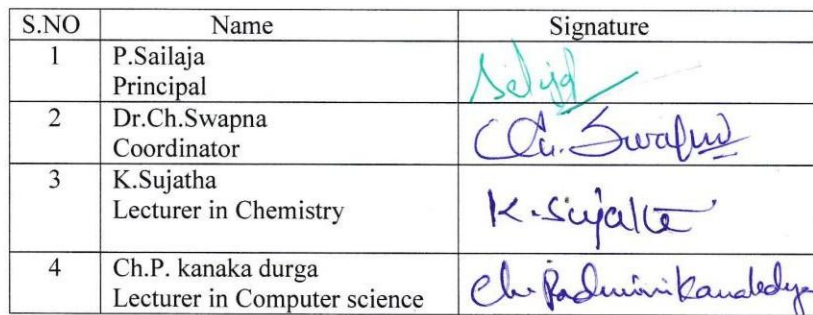 S.NO Name Signature
1 P.Sailaja
Principal
2 Dr.Ch.Swapna
Coordinator
Ch. Swapna
3 K.Sujatha
Lecturer in Chemistry
K. Sujatha
4 Ch.P. kanaka durga
Lecturer in Computer science